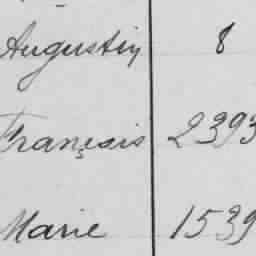 Augustin 8
François 2393
Marie 1539